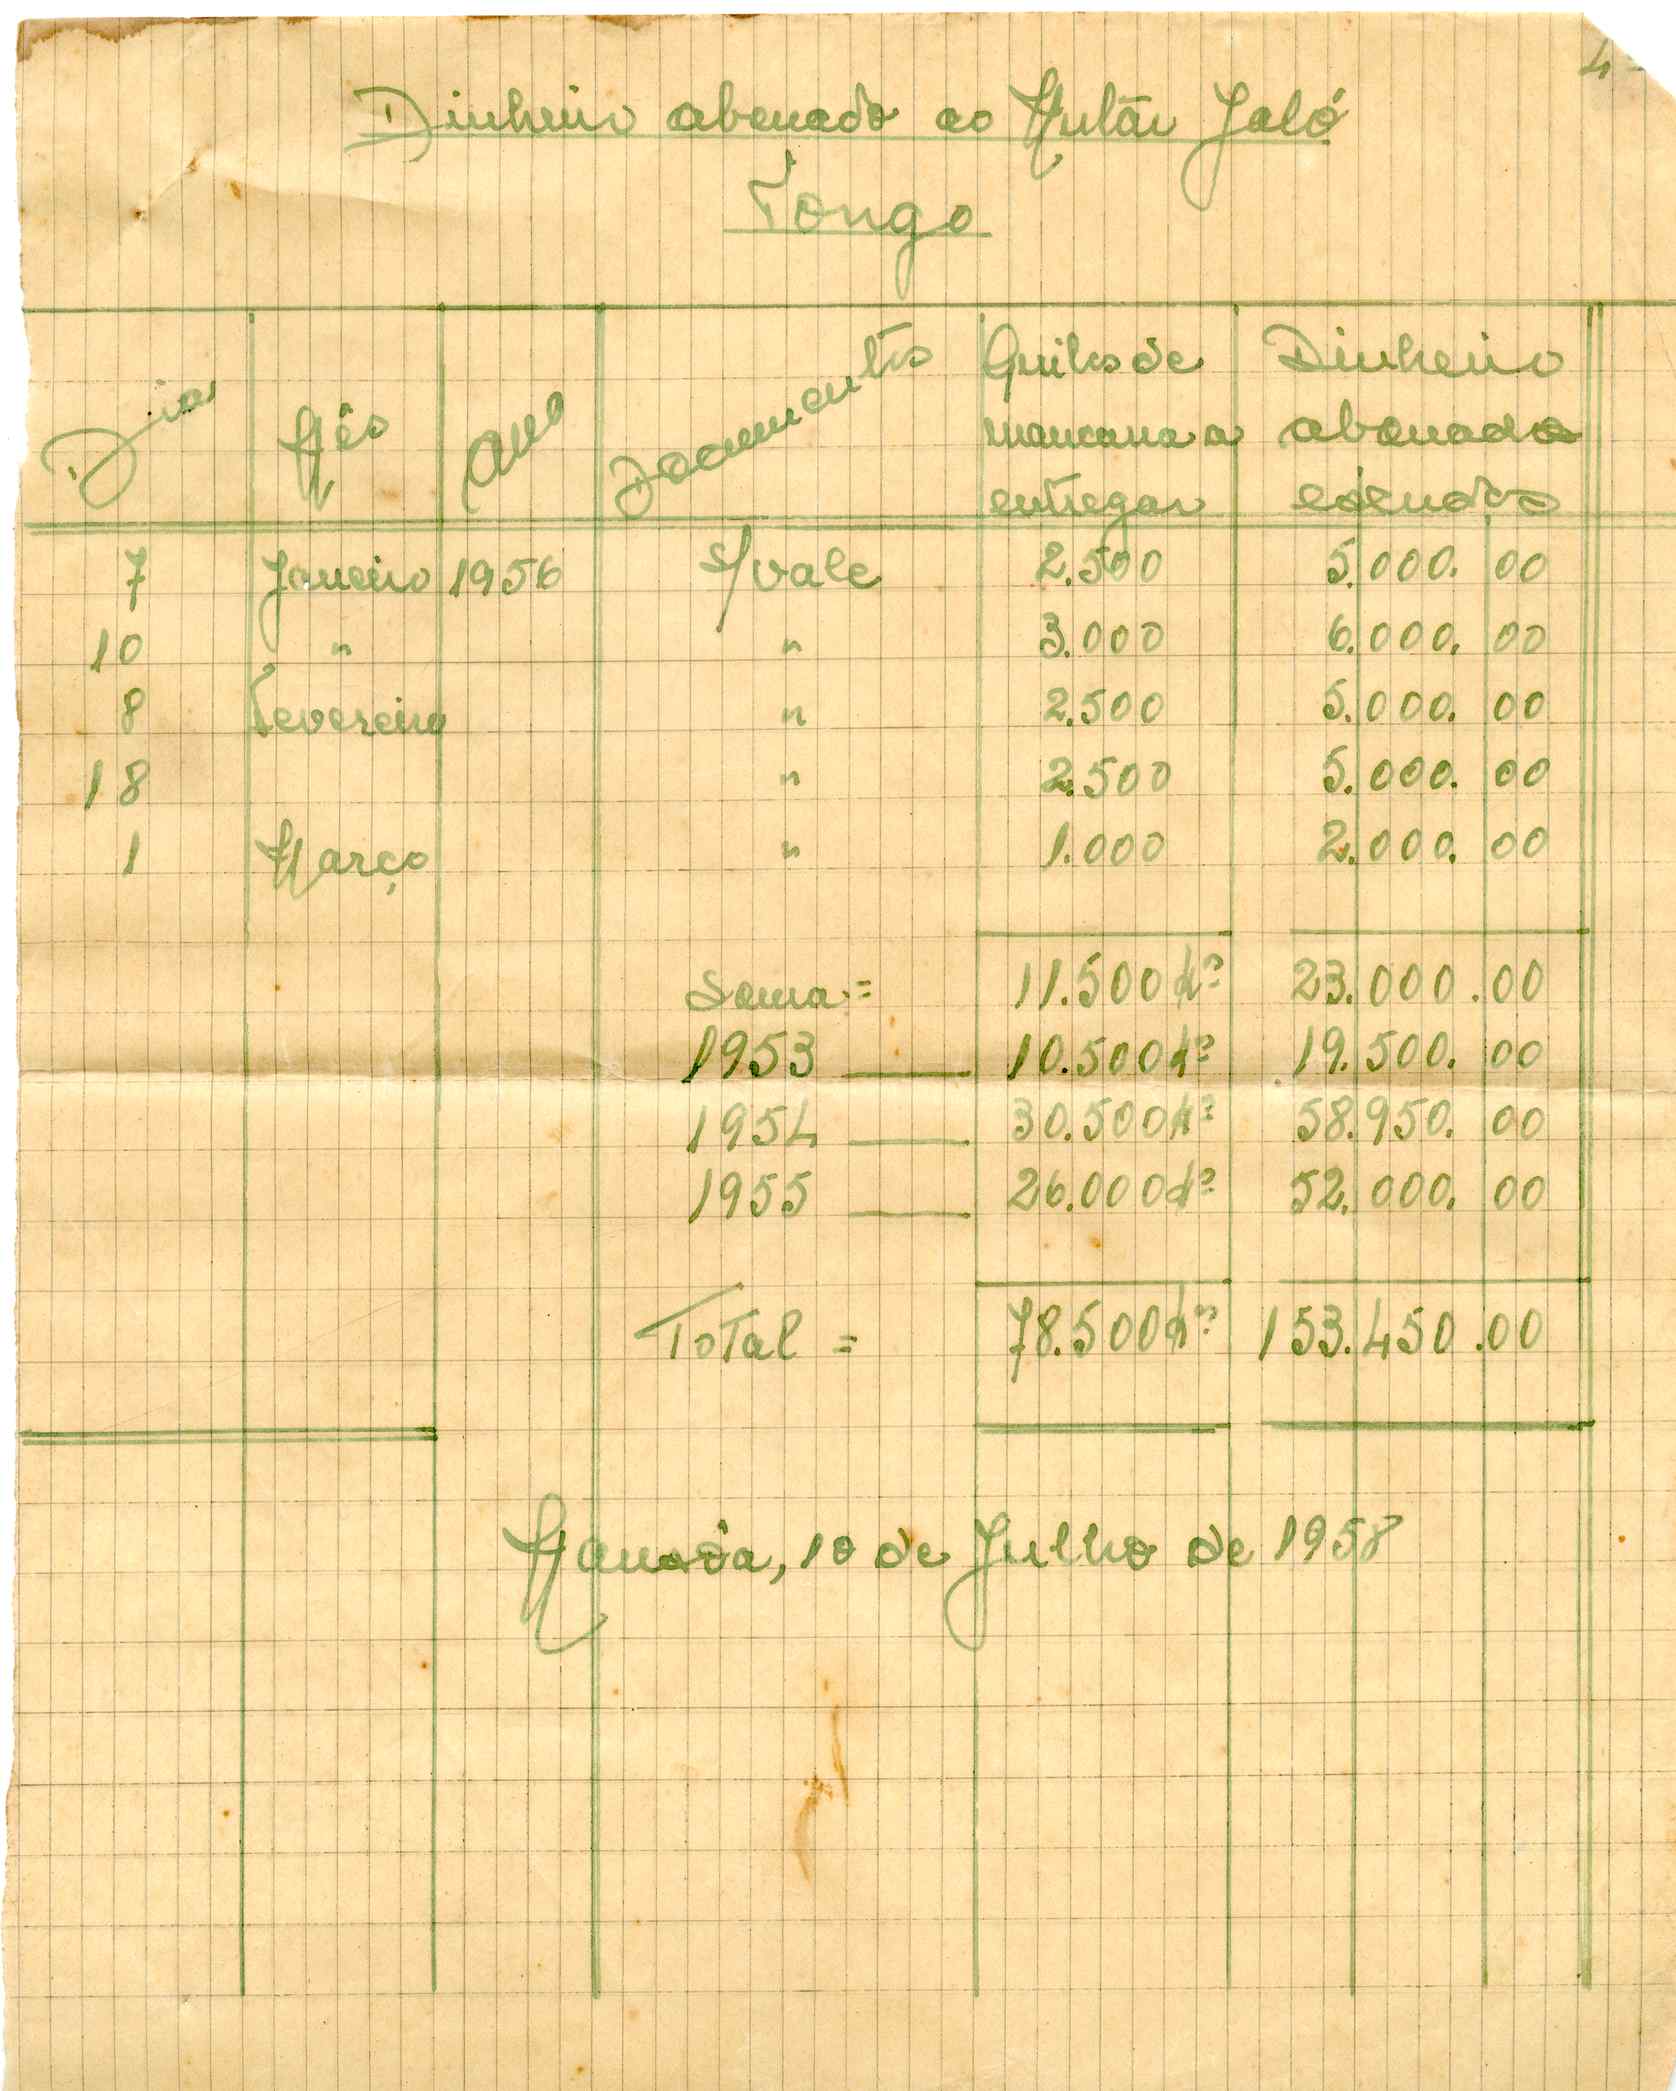 4=
Dinheiro abonado ao Mutár Jaló
Tongo
Dia Mês Ano Documentos Quilos de mancarra a entregar Dinheiro abonado escudos
7 Janeiro 1956 s/vale 2.500 5.000.00
10 " " 3.000 6.000.00
8 Fevereiro " 2.500 5.000.00
18 " 2.500 5.000.00
1 Março " 1.000 2.000.00
Soma = 11.500 k.º 23.000.00
1953 — 10.500 k.º 19.500.00
1954 — 30.500 k.º 58.950.00
1955 — 26.000 k.º 52.000.00
Total = 78.500 k.º 153.450.00
Mansôa, 10 de Julho de 1958